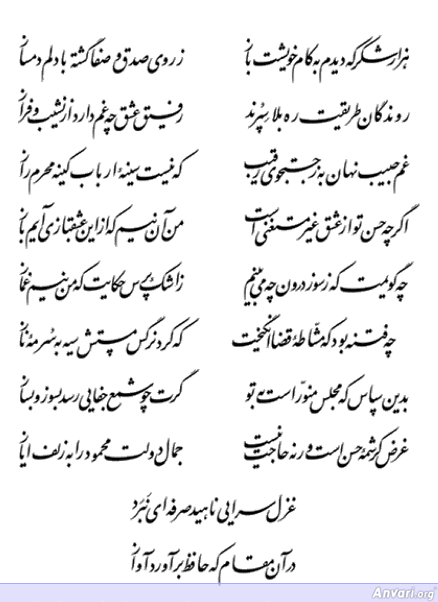 هزار شکر که دیدم به کام خویشت باز ز روی صدق و صفا گشته با دلم دمساز
روندگان طریقت ره بلا سپرند رفیق عشق چه غم دارد از نشیب و فراز
غم حبیب نهان به ز جستجوی رقیب که نیست سینهٔ ارباب کینه محرم راز
اگرچه حسن تو از عشق غیر مستغنی است من آن نیم که از این عشقبازی آیم باز
چه گویمت که ز سوز درون چه می‌بینم ز اشک پرس حکایت که من نیم غماز
چه فتنه بود که مشّاطهٔ قضا انگیخت که کرد نرگس مستش سیه به سرمهٔ ناز
بدین سپاس که مجلس منوّر است به تو گرت چو شمع جفایی رسد بسوز و بساز
غرض کرشمهٔ حسن است ور نه حاجت نیست جمال دولت محمود را به زلف ایاز
غزل سرایی ناهید صرفه‌ای نَبَرد
در آن مقام که حافظ برآورد آواز
Anvari.org